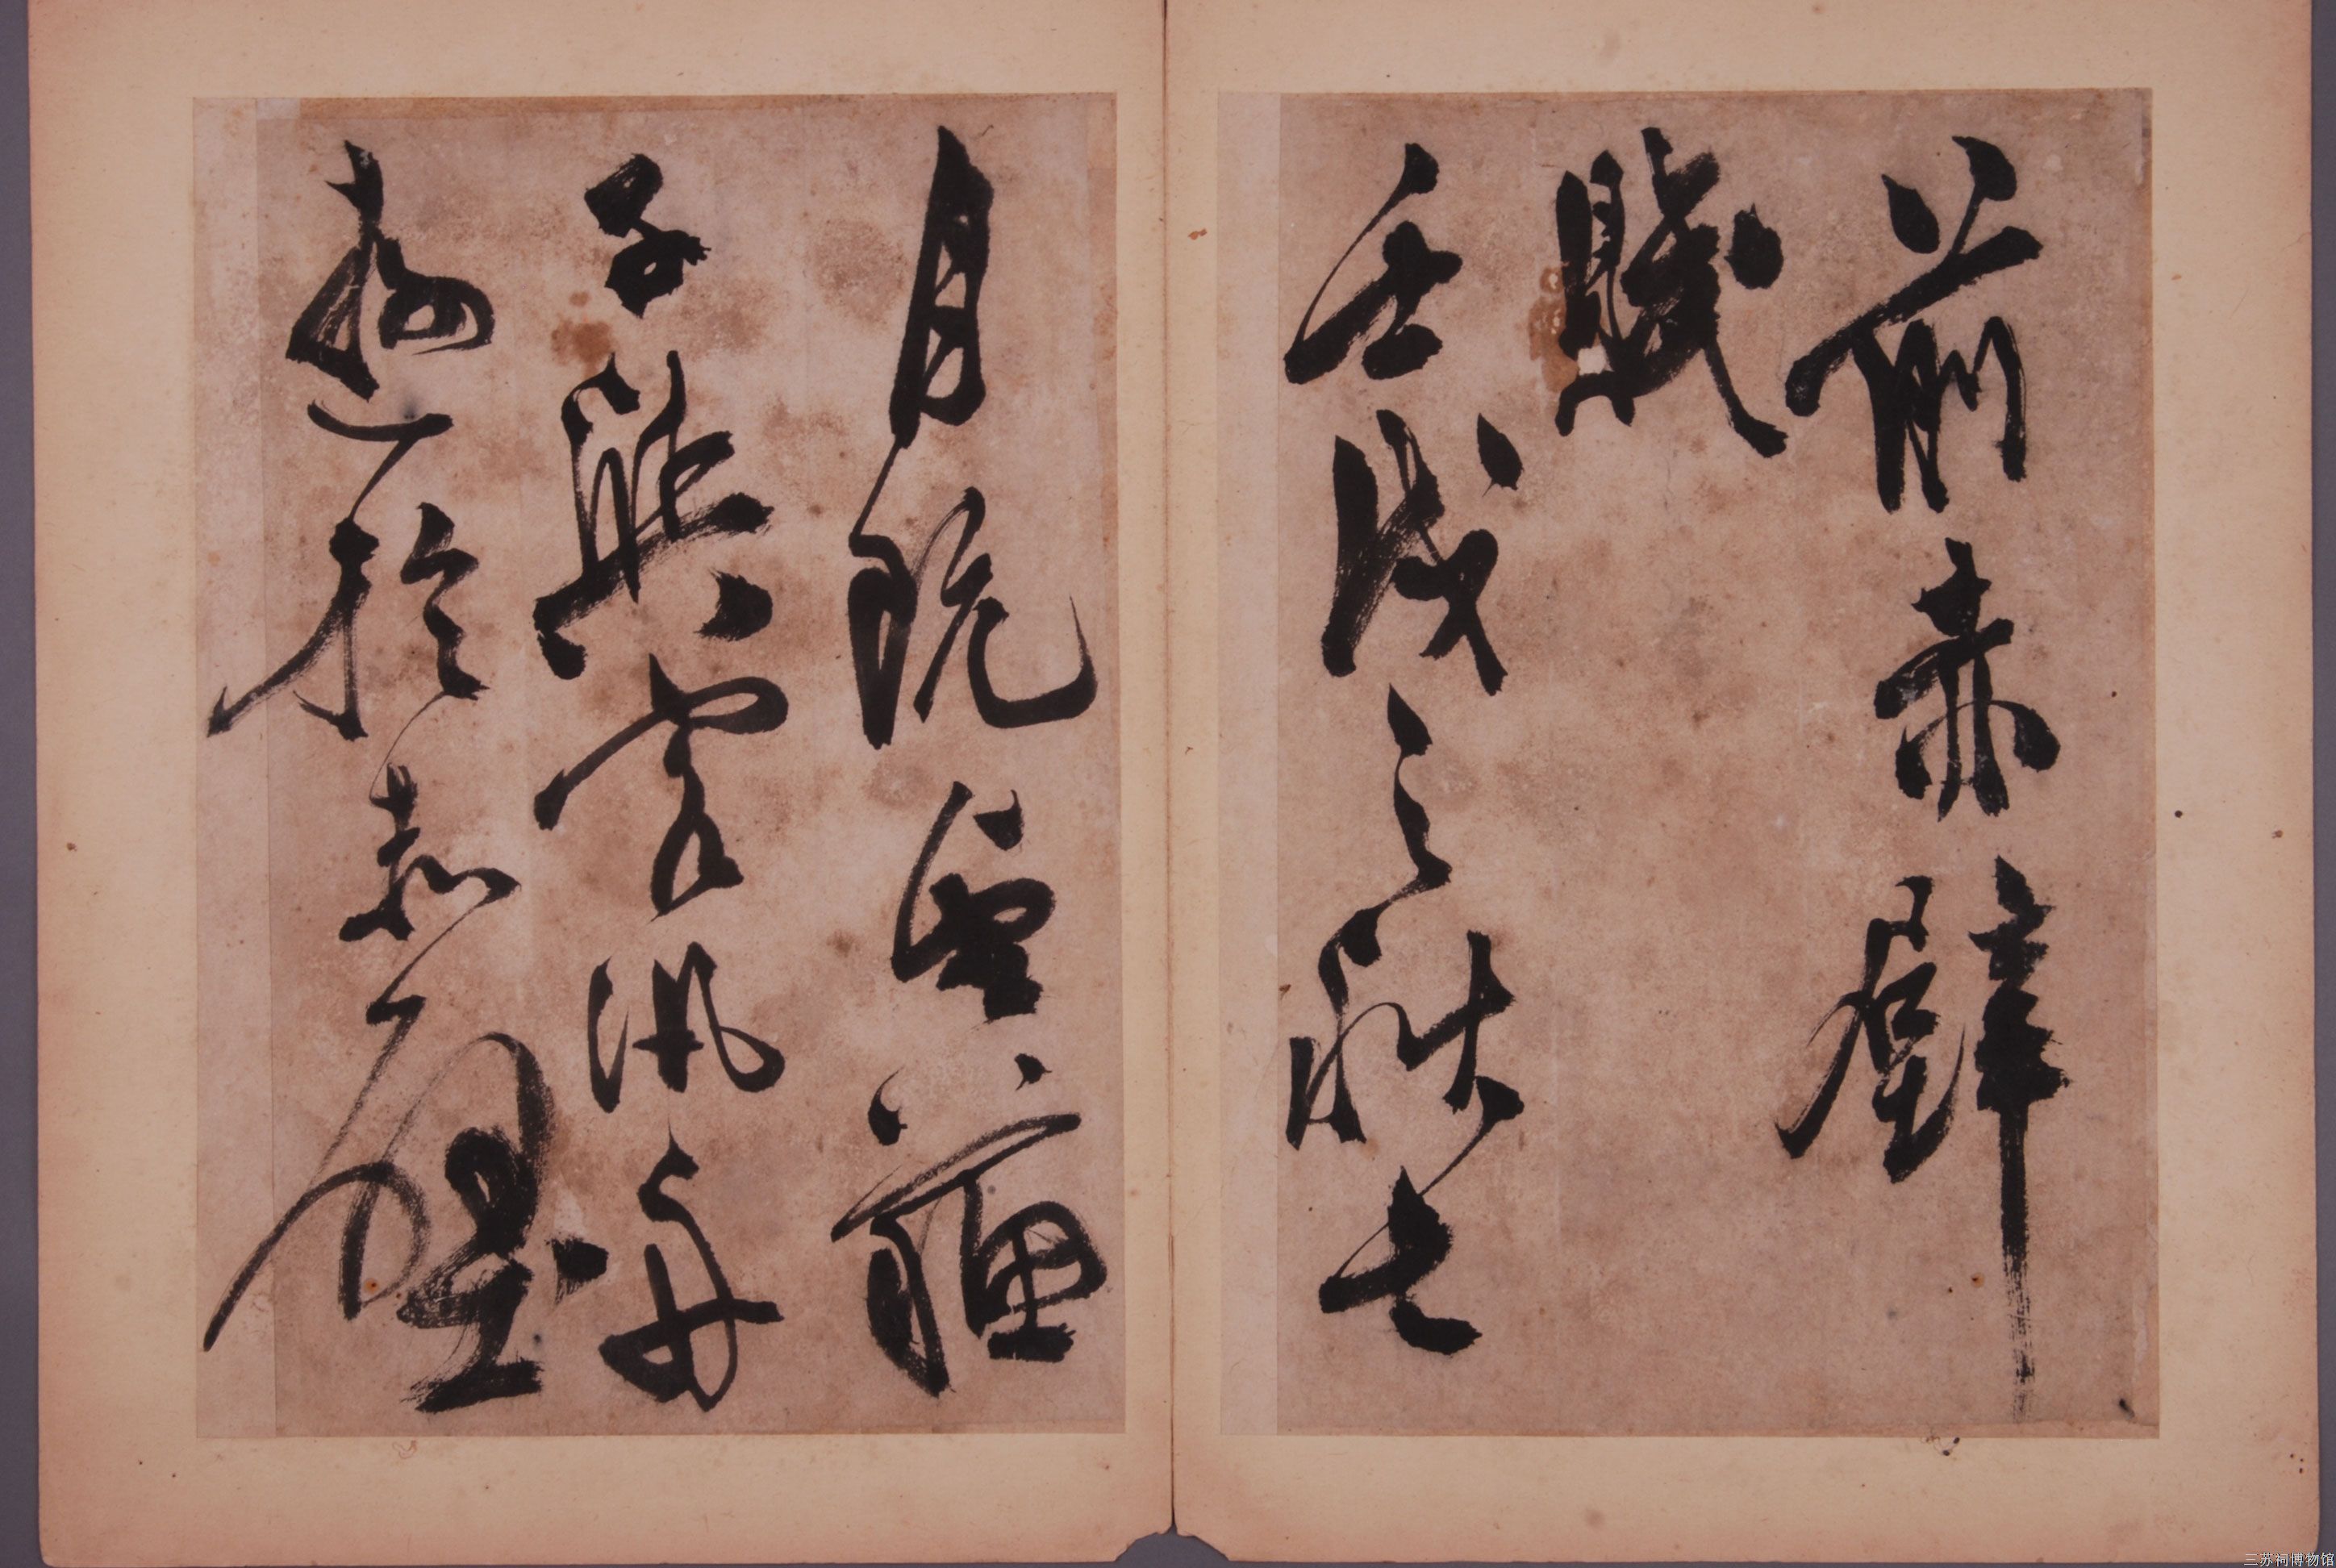 前赤壁
賦
壬戌之秋七
月既望蘇
子與客汎舟
遊於赤壁
三苏祠博物馆